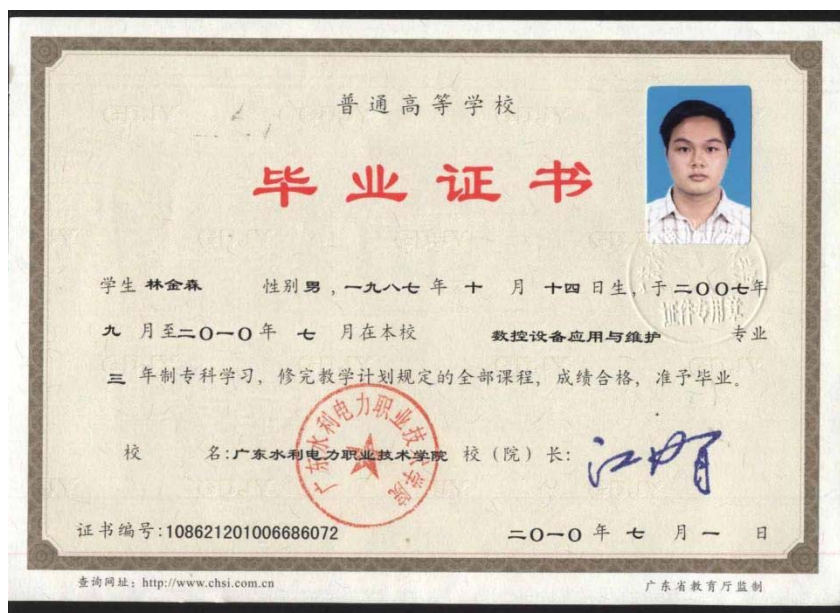 普通高等学校
毕业证书
学生 林金森 性别 男 , 一九八七 年 十 月 十四 日生, 于 二〇〇七 年
九 月至 二〇一〇 年 七 月在本校 数控设备应用与维护 专业
三 年制专科学习, 修完教学计划规定的全部课程, 成绩合格, 准予毕业。
广东水利电力职业技术学院
校 名: 广东水利电力职业技术学院 校 (院) 长:
证书编号: 108621201006686072 二〇一〇 年 七 月 一 日
查询网址: http://www.chsi.com.cn 广东省教育厅监制